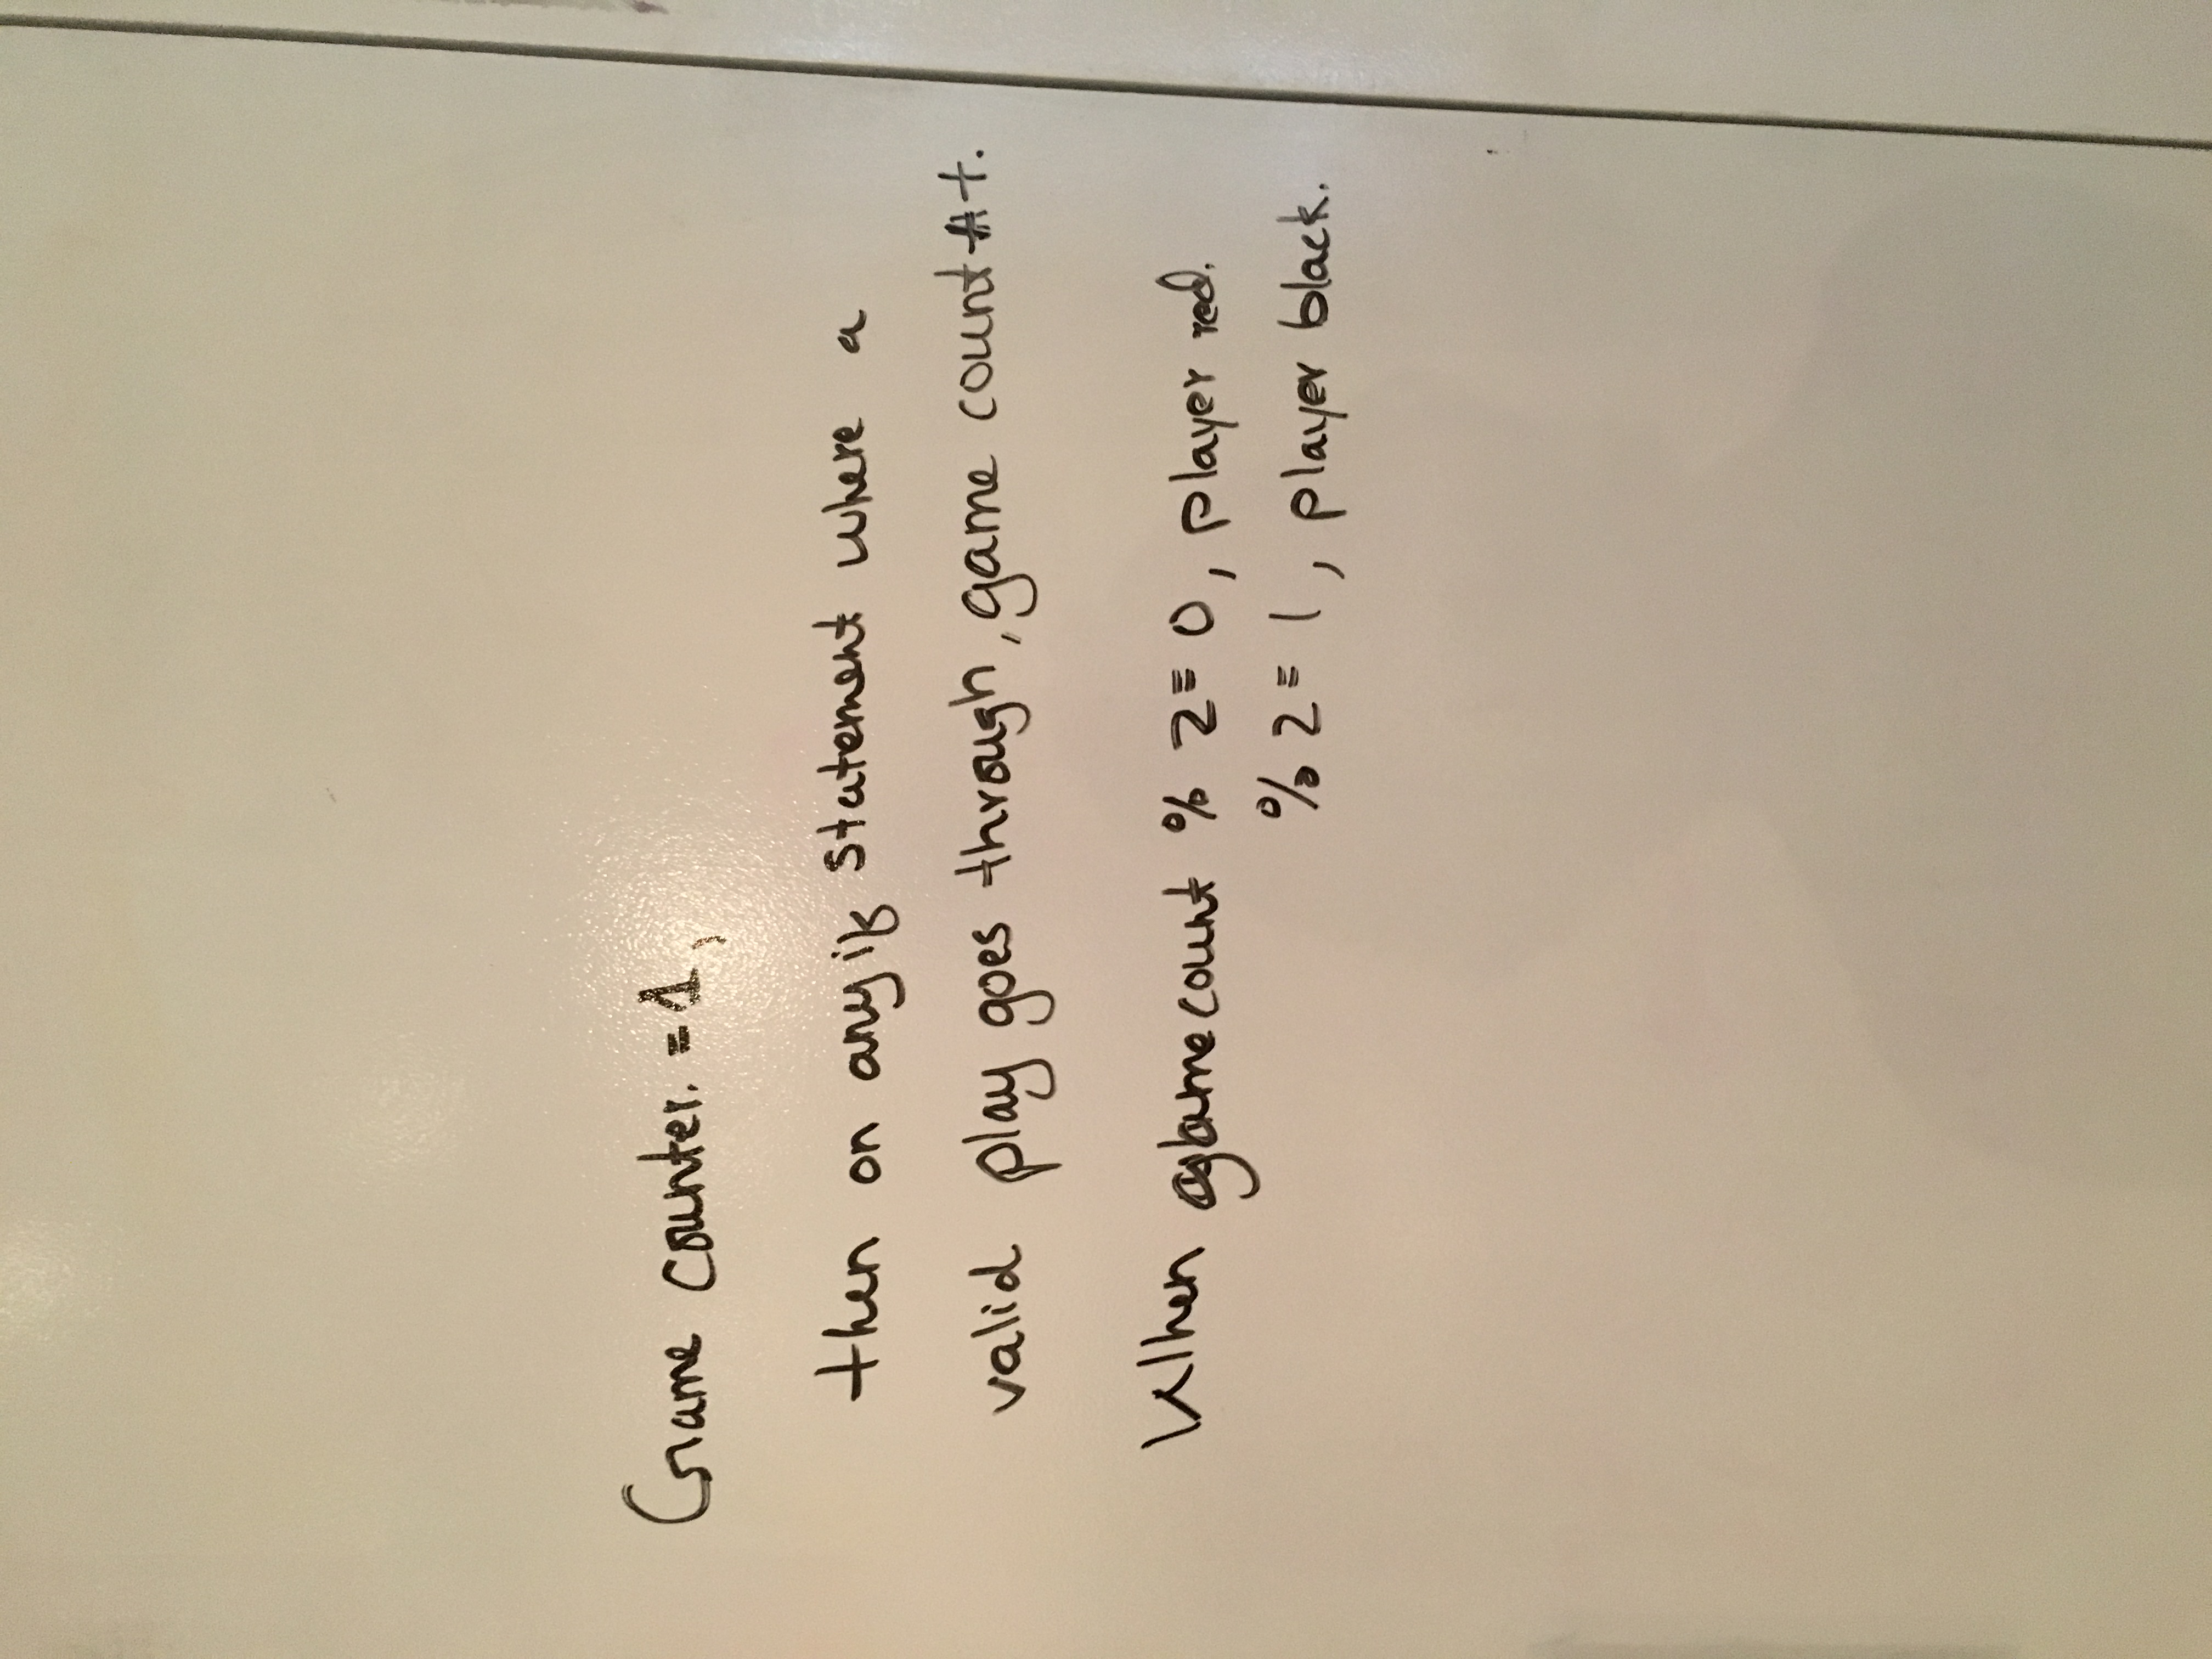 Game counter. = 1,
then on any if statement where a
valid play goes through, game count ++.
When gamecount % 2 ≡ 0, player red.
% 2 ≡ 1, player black.